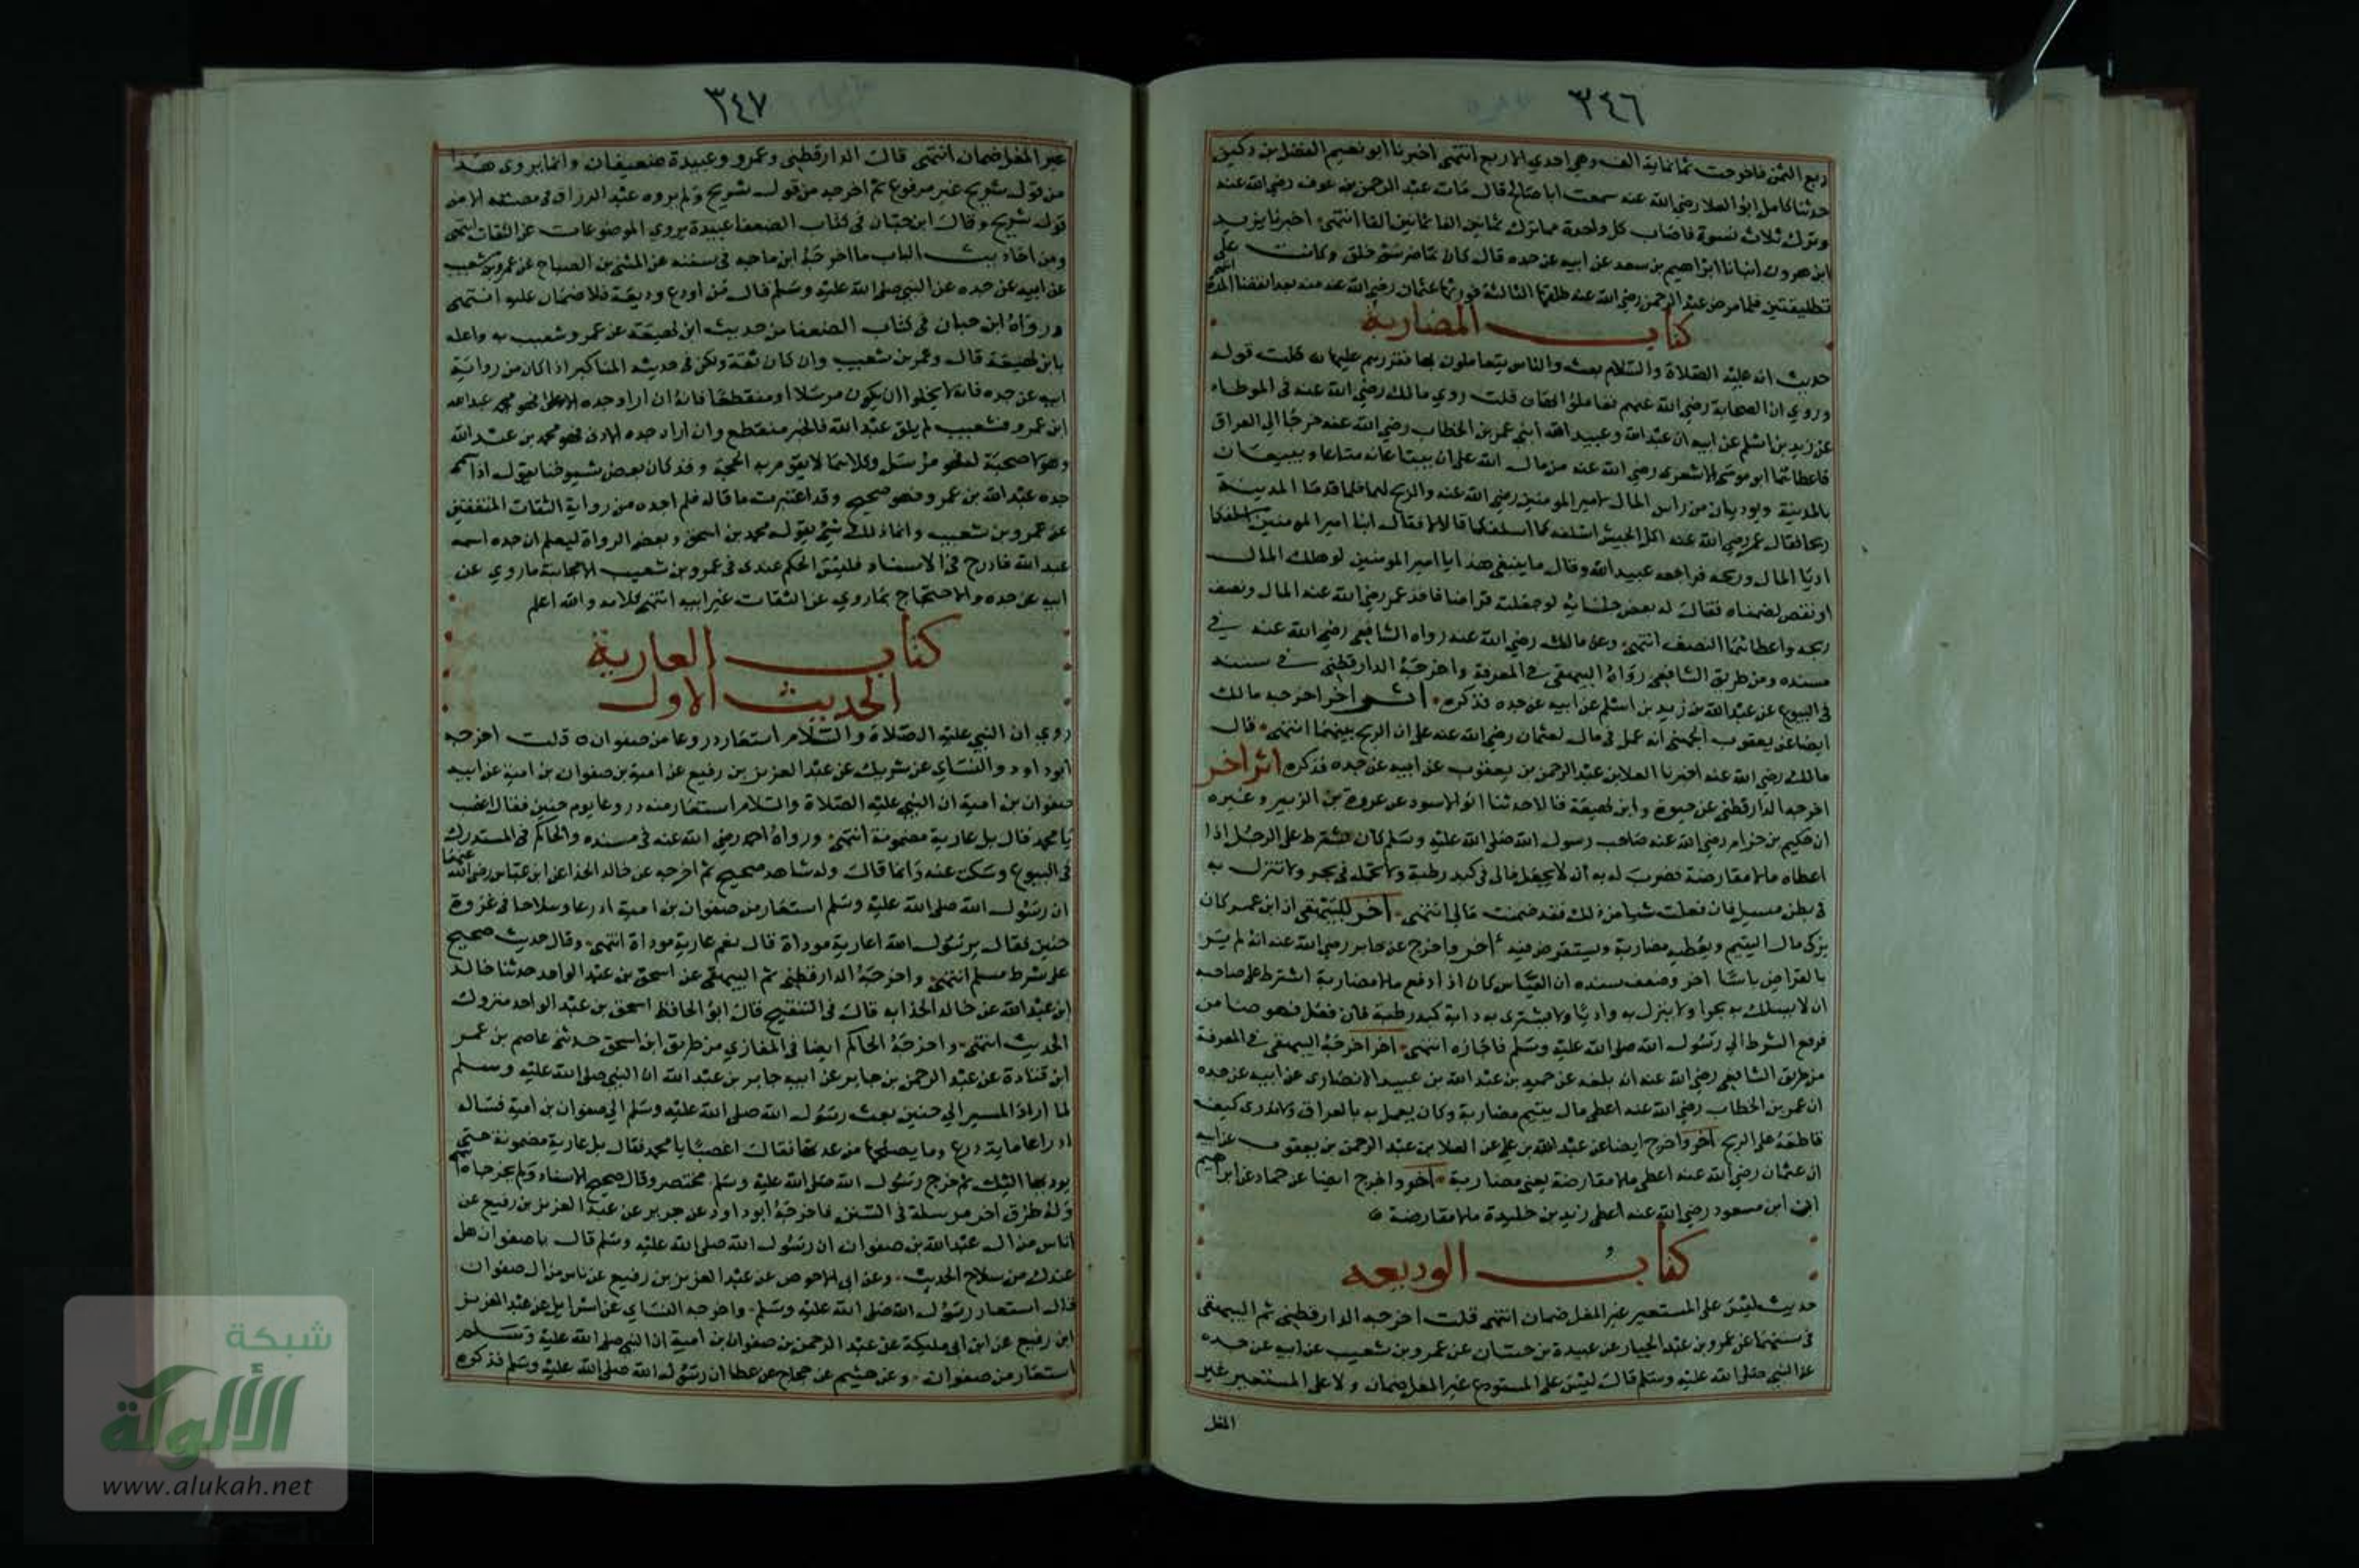 ٣٤٦
ربع الثمن فاخرجت بثمانماية الف وهي احدي الاربع انتهى اخبرنا ابو نعيم الفضل بن دكين
حدثنا كامل ابو العلا رضي الله عنه سمعت ابا صالح قال مات عبد الرحمن بن عوف رضي الله عنه
وترك ثلاث نسوة فاصاب كل واحدة مما ترك ثمانين الفا ثمانين الفا انتهى اخبرنا يزيد
ابن هرون انبانا ابراهيم بن سعد عن ابيه عن جده قال كان تماضر خلق وكانت على
تطليقتين فلما مرض عبد الرحمن رضي الله عنه طلقها الثالثة فورثها عثمان رضي الله عنه منه بعد انقضا العدة انتهى
كتاب المضاربة
حديث انه عليه الصلاة والسلام بعث والناس يتعاملون بها فقررهم عليها قلت قوله
وروي ان الصحابة رضي الله عنهم تعاملوا قلت روي مالك رضي الله عنه في الموطا
عن زيد بن اسلم عن ابيه ان عبد الله وعبيد الله ابني عمر بن الخطاب رضي الله عنه خرجا الى العراق
فاعطاهما ابو موسى الاشعري رضي الله عنه من مال الله على ان يبتاعا به متاعا ويبيعان
بالمدينة ويوديان من راس المال لامير المومنين رضي الله عنه والربح لهما فلما قدما المدينة
ربحا فقال عمر رضي الله عنه اكل الجيش اسلفه كما اسلفكما قالا لا فقال ابنا امير المومنين اسلفكما
اديا المال وربحه فراجعه عبيد الله وقال ما ينبغي هذا يا امير المومنين لو هلك المال
او نقص لضمناه فقال له بعض جلسايه لو جعلته قراضا فاخذ عمر رضي الله عنه المال ونصف
ربحه واعطاهما النصف انتهى وعن مالك رضي الله عنه رواه الشافعي رضي الله عنه في
مسنده ومن طريق الشافعي رواه البيهقي في المعرفة واخرجه الدارقطني في سننه
في البيوع عن عبد الله بن زيد بن اسلم عن ابيه عن جده فذكره اثر اخر اخرجه مالك
ايضا عن يعقوب الجهني انه عمل في مال لعثمان رضي الله عنه على ان الربح بينهما انتهى قال
مالك رضي الله عنه اخبرنا العلا بن عبد الرحمن بن يعقوب عن ابيه عن جده فذكره اثر اخر
اخرجه الدارقطني عن حيوة وابن لهيعة قالا حدثنا ابو الاسود عن عروة بن الزبير وغيره
ان حكيم بن حزام رضي الله عنه صاحب رسول الله صلى الله عليه وسلم كان يشترط على الرجل اذا
اعطاه مالا مقارضة فضرب له به ان لا يجعل مالي في كبد رطبة ولا تحمله في بحر ولا تنزل به
في بطن مسيل فان فعلت شيا من ذلك فقد ضمنت مالي انتهى اخر للبيهقي ان ابن عمر كان
يزكي مال اليتيم ويعطيه مضاربة ويستقرض فيه اخر واخرج عن جابر رضي الله عنه انه لم ير
بالقراض باسا اخر وضعف سنده ان العباس كان اذا دفع مالا مضاربة اشترط على صاحبه
ان لا يسلك به بحرا ولا ينزل به واديا ولا يشتري به دابة كبد رطبة فان فعل فهو ضامن
فرفع الشرط الى رسول الله صلى الله عليه وسلم فاجازه انتهى اخر اخرجه البيهقي في المعرفة
من طريق الشافعي رضي الله عنه انه بلغه عن حميد بن عبد الله بن عبيد الانصاري عن ابيه عن جده
ان عمر بن الخطاب رضي الله عنه اعطى مال يتيم مضاربة وكان يعمل به بالعراق ولا ندري كيف
قاطعه على الربح اخر واخرج ايضا عن عبد الله بن علي عن العلا بن عبد الرحمن بن يعقوب عن ابيه
ان عثمان رضي الله عنه اعطى مالا مقارضة يعني مضاربة اخر واخرج ايضا عن حماد عن ابراهيم
ان ابن مسعود رضي الله عنه اعطى زيد بن خليدة مالا مقارضة
كتاب الوديعه
حديث ليس على المستعير غير المغل ضمان انتهى قلت اخرجه الدارقطني ثم البيهقي
في سننهما عن عمرو بن عبد الجبار عن عبيدة بن حسان عن عمرو بن شعيب عن ابيه عن جده
عن النبي صلى الله عليه وسلم قال ليس على المستودع غير المغل ضمان ولا على المستعير غير
المغل
٣٤٧
غير المغل ضمان انتهى قال الدارقطني وعمرو وعبيدة ضعيفان وانما يروى هذا
من قول شريح غير مرفوع ثم اخرجه من قول شريح ولم يروه عبد الرزاق في مصنفه الا من
قول شريح وقال ابن حبان في كتاب الضعفا عبيدة يروي الموضوعات عن الثقات انتهى
ومن احاديث الباب ما اخرجه ابن ماجه في سننه عن المثنى بن الصباح عن عمرو بن شعيب
عن ابيه عن جده عن النبي صلى الله عليه وسلم قال من اودع وديعة فلا ضمان عليه انتهى
ورواه ابن حبان في كتاب الضعفا من حديث ابن لهيعة عن عمرو شعيب به واعله
بابن لهيعة قال وعمر بن شعيب وان كان ثقة ولكن في حديثه المناكير اذا كان من رواية
ابيه عن جده فانه لا يخلوا ان يكون مرسلا او منقطعا فانه ان اراد جده الاعلى فهو عبد الله
ابن عمرو فشعيب لم يلق عبد الله فالخبر منقطع وان اراد جده الادنى فهو محمد بن عبد الله
وهو لا صحبة له فهو مرسل وكلاهما لا يقوم به الحجة وقد كان بعض شيوخنا يقول اذا سمى
جده عبد الله بن عمرو فهو صحيح وقد اعتبرت ما قاله فلم اجده من رواية الثقات المتقنين
عن عمرو بن شعيب وانما ذلك شي يقوله محمد بن اسحق وبعض الرواة ليعلم ان جده اسمه
عبد الله فادرج في الاسناد فليس الحكم عندى في عمرو بن شعيب الا مجانبة ما روي عن
ابيه عن جده والاحتجاج بما روي عن الثقات غير ابيه انتهى كلامه والله اعلم
كتاب العارية
الحديث الاول
روي ان النبي عليه الصلاة والسلام استعار دروعا من صفوان قلت اخرجه
ابو داود والنساي عن شريك عن عبد العزيز بن رفيع عن امية بن صفوان بن امية عن ابيه
صفوان بن امية ان النبي عليه الصلاة والسلام استعار منه دروعا يوم حنين فقال اغصب
يا محمد قال بل عارية مضمونة انتهى ورواه احمد رضي الله عنه في مسنده والحاكم في المستدرك
في البيوع وسكت عنه وانما قال وله شاهد صحيح ثم اخرجه عن خالد الحذا عن ابن عباس رضي الله عنهما
ان رسول الله صلى الله عليه وسلم استعار من صفوان بن امية ادرعا وسلاحا في غزوة
حنين فقال يرسول الله اعارية موداة قال نعم عارية موداة انتهى وقال حديث صحيح
على شرط مسلم انتهى واخرجه الدارقطني ثم البيهقي عن اسحق بن عبد الواحد حدثنا خالد
ابن عبد الله عن خالد الحذا به قال في التنقيح قال ابو الحافظ اسحق بن عبد الواحد متروك
الحديث انتهى واخرجه الحاكم ايضا في المغازي من طريق ابن اسحق حدثني عاصم بن عمر
ابن قتادة عن عبد الرحمن بن جابر عن ابيه جابر بن عبد الله ان النبي صلى الله عليه وسلم
لما اراد المسير الى حنين بعث رسول الله صلى الله عليه وسلم الى صفوان بن امية فساله
ادراعا ماية درع وما يصلحها من عدتها فقال اغصبا يا محمد فقال بل عارية مضمونة حتى
يوديها اليك ثم خرج رسول الله صلى الله عليه وسلم مختصر وقال صحيح الاسناد ولم يخرجاه انتهى
وله طرق اخر مرسلة في السنن فاخرجه ابو داود عن جرير عن عبد العزيز بن رفيع عن
اناس من ال عبد الله بن صفوان ان رسول الله صلى الله عليه وسلم قال يا صفوان هل
عندك من سلاح الحديث وعن ابي الاحوص عن عبد العزيز بن رفيع عن ناس من ال صفوان
قال استعار رسول الله صلى الله عليه وسلم واخرجه النساي عن اسرايل عن عبد العزيز
ابن رفيع عن ابن ابي مليكة عن عبد الرحمن بن صفوان بن امية ان النبي صلى الله عليه وسلم
استعار من صفوان وعن هشيم عن حجاج عن عطا ان رسول الله صلى الله عليه وسلم فذكره
شبكة
الألوكة
www.alukah.net